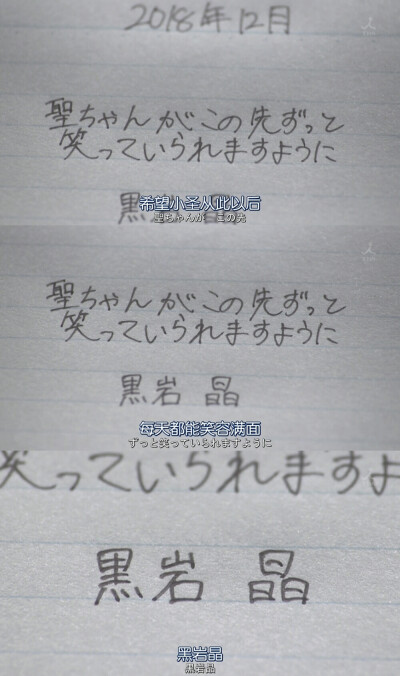 2018年12月
聖ちゃんがこの先ずっと
笑っていられますように
黒岩 晶
希望小圣从此以后
聖ちゃんが この先
聖ちゃんがこの先ずっと
笑っていられますように
黒岩 晶
每天都能笑容满面
ずっと笑っていられますように
笑っていられますよ
黒岩 晶
黑岩晶
黒岩晶